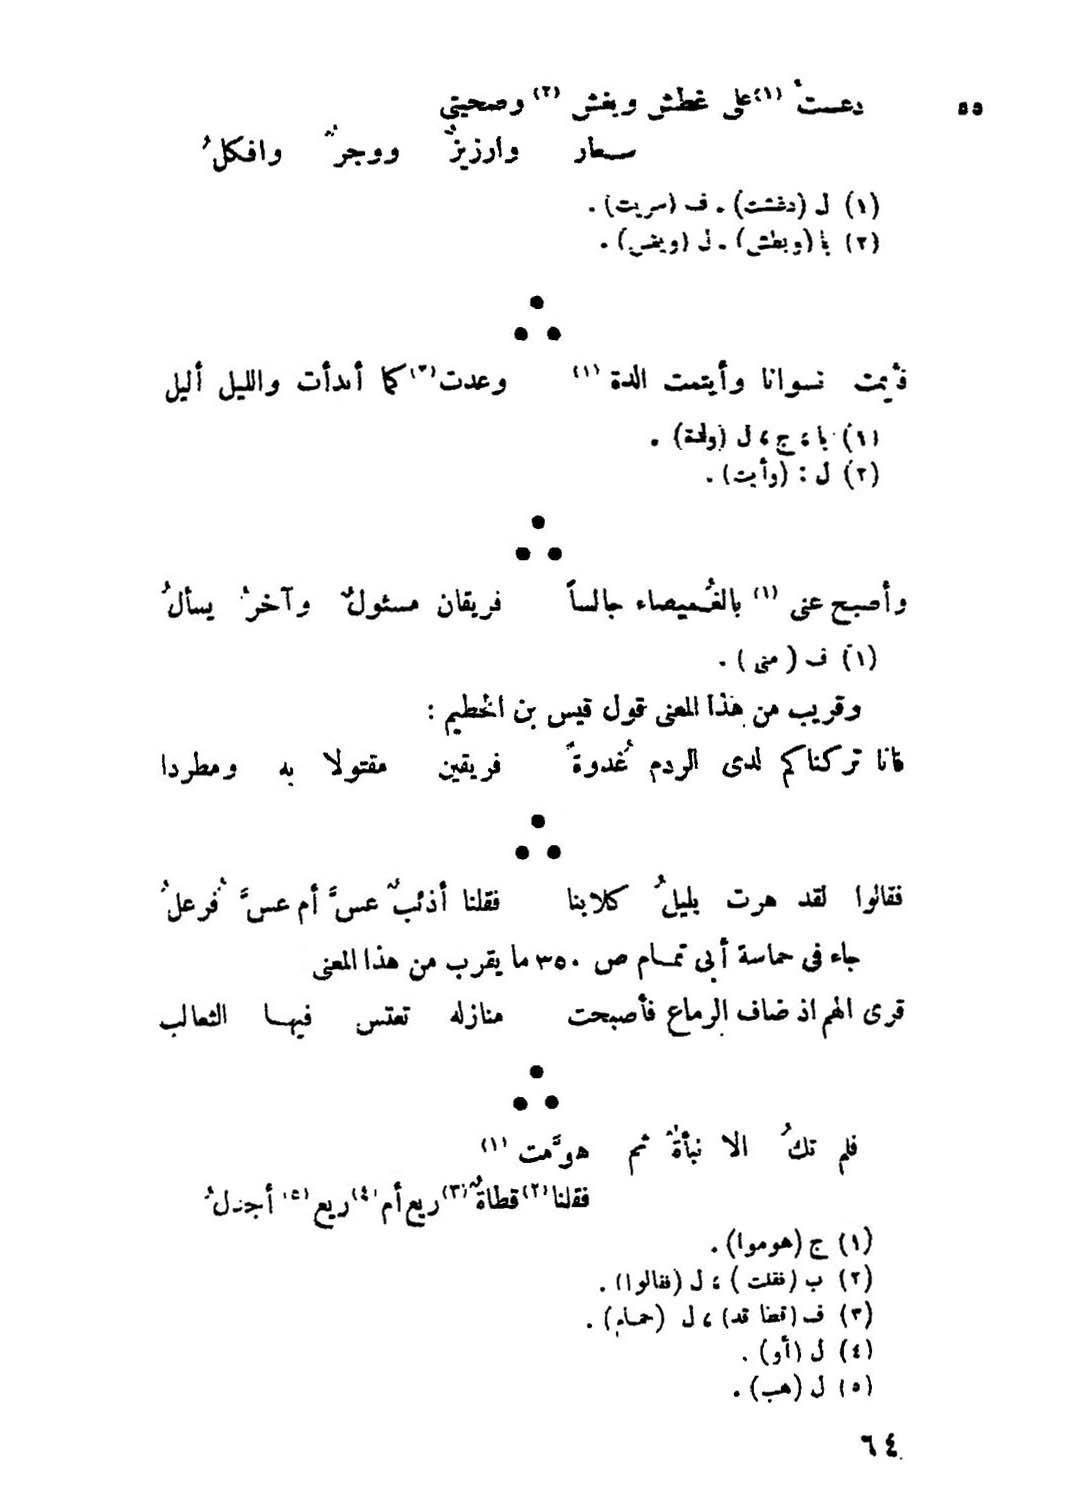 ٥٥ دعستُ (١) على غطش وبغش (٢) وصحبتي
سعار وارزيزٌ ووجرٌ وافكلُ
(١) ل (دغشت) . ف (سريت) .
(٢) با (وبطش) . ل (وبغس) .
فأيمت نسوانا وأيتمت الدة (١) وعدت (٢) كما أبدأت والليل أليل
(١) با ، ج ، ل (ولدة) .
(٢) ل : (وأبت) .
وأصبح عنى (١) بالغُميصاء جالساً فريقان مسئولٌ وآخرُ يسألُ
(١) ف (منى) .
وقريب من هذا المعنى قول قيس بن الخطيم :
فانا تركناكم لدى الردم غُدوةً فريقين مقتولا به ومطردا
فقالوا لقد هرت بليلُ كلابنا فقلنا أذئبٌ عسَّ أم عسَّ فُرعلُ
جاء في حماسة أبي تمام ص ٣٥٠ ما يقرب من هذا المعنى
قرى الهم اذ ضاف الرماع فأصبحت منازله تعتس فيها الثعالب
فلم تكُ الا نبأةٌ ثم هوَّمت (١)
فقلنا (٢) قطاةٌ (٣) ريع أم (٤) ريع (٥) أجدلُ
(١) ج (هوموا) .
(٢) ب (فقلت) ؛ ل (فقالوا) .
(٣) ف (قطا قد) ، ل (حمام) .
(٤) ل (أو) .
(٥) ل (هب) .
٦٤